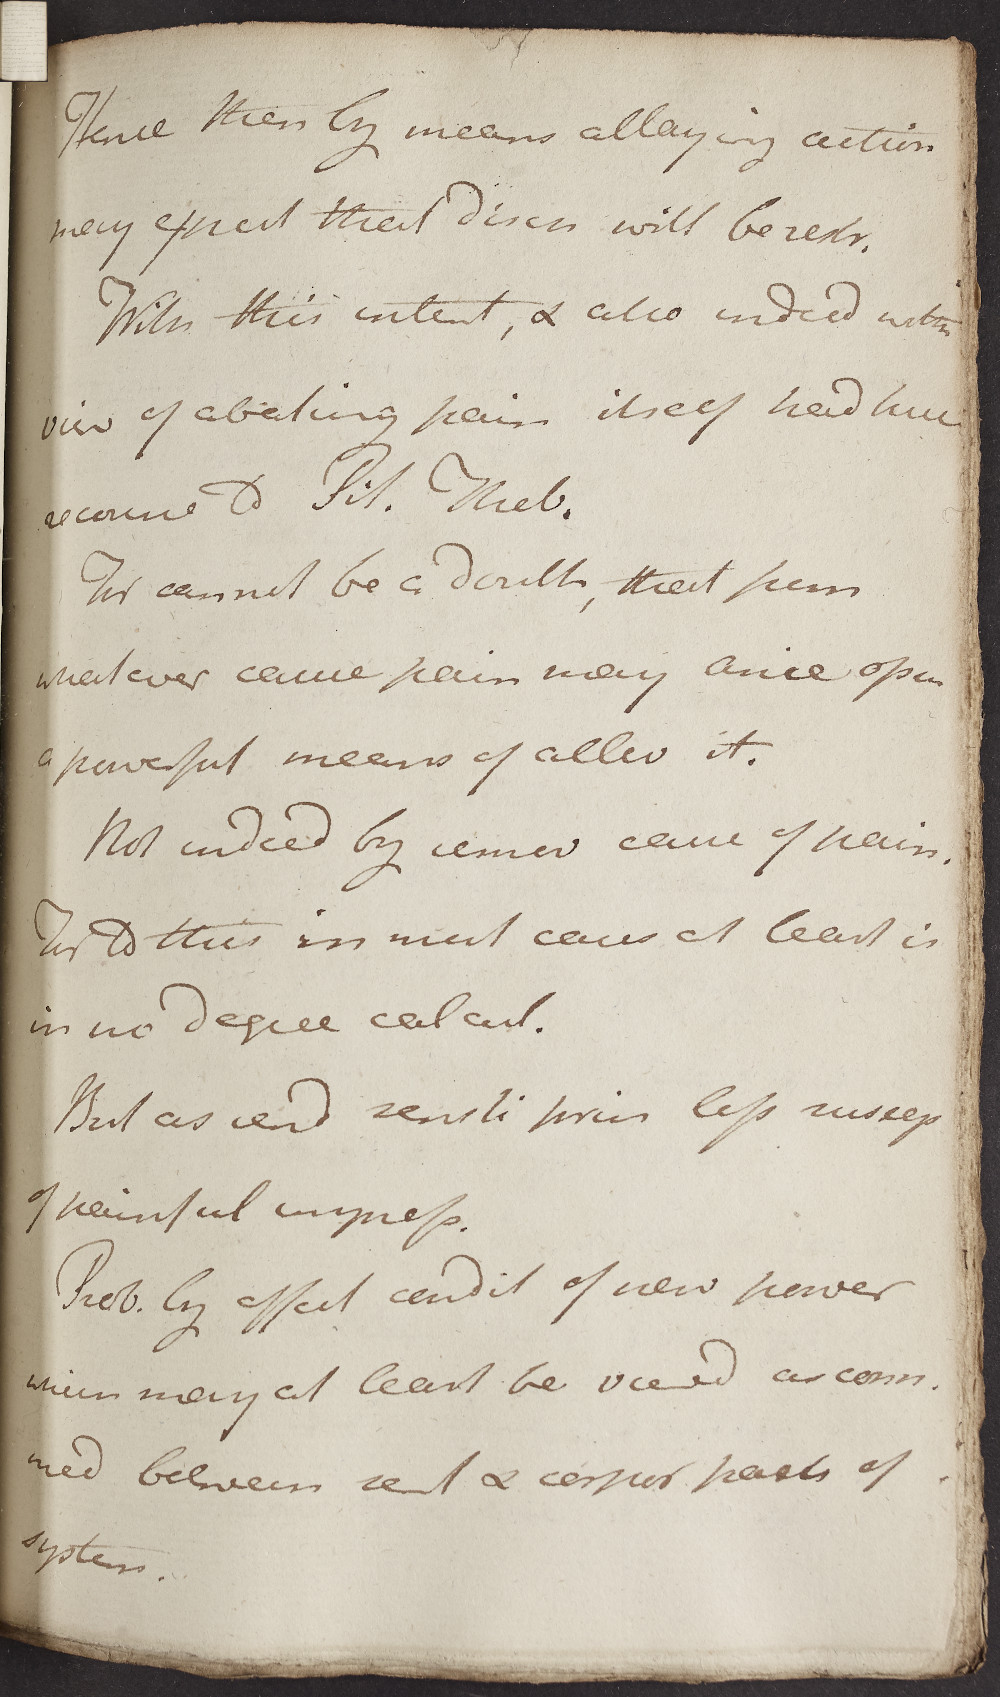 Hence then by means allaying action
may expect that disch will be restr.
With this intent, & also indeed with
view of abating pain itself had here
recourse to Pil. Theb.
Ther cannot be a doubt, that from
whatever cause pain may arise opm
a powerful means of allev it.
Not indeed by remov cause of pain.
For to this in most cases at least is
in no degree calcul.
But as rend senti prin less suscep
of painful impress.
Prob. by effect condit of nerv power
which may at least be viewed as comm.
med between sent & corpor parts of
system.